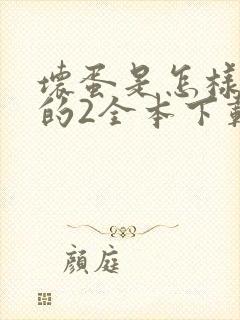 壞蛋是怎樣
的2全本下載
顏庭